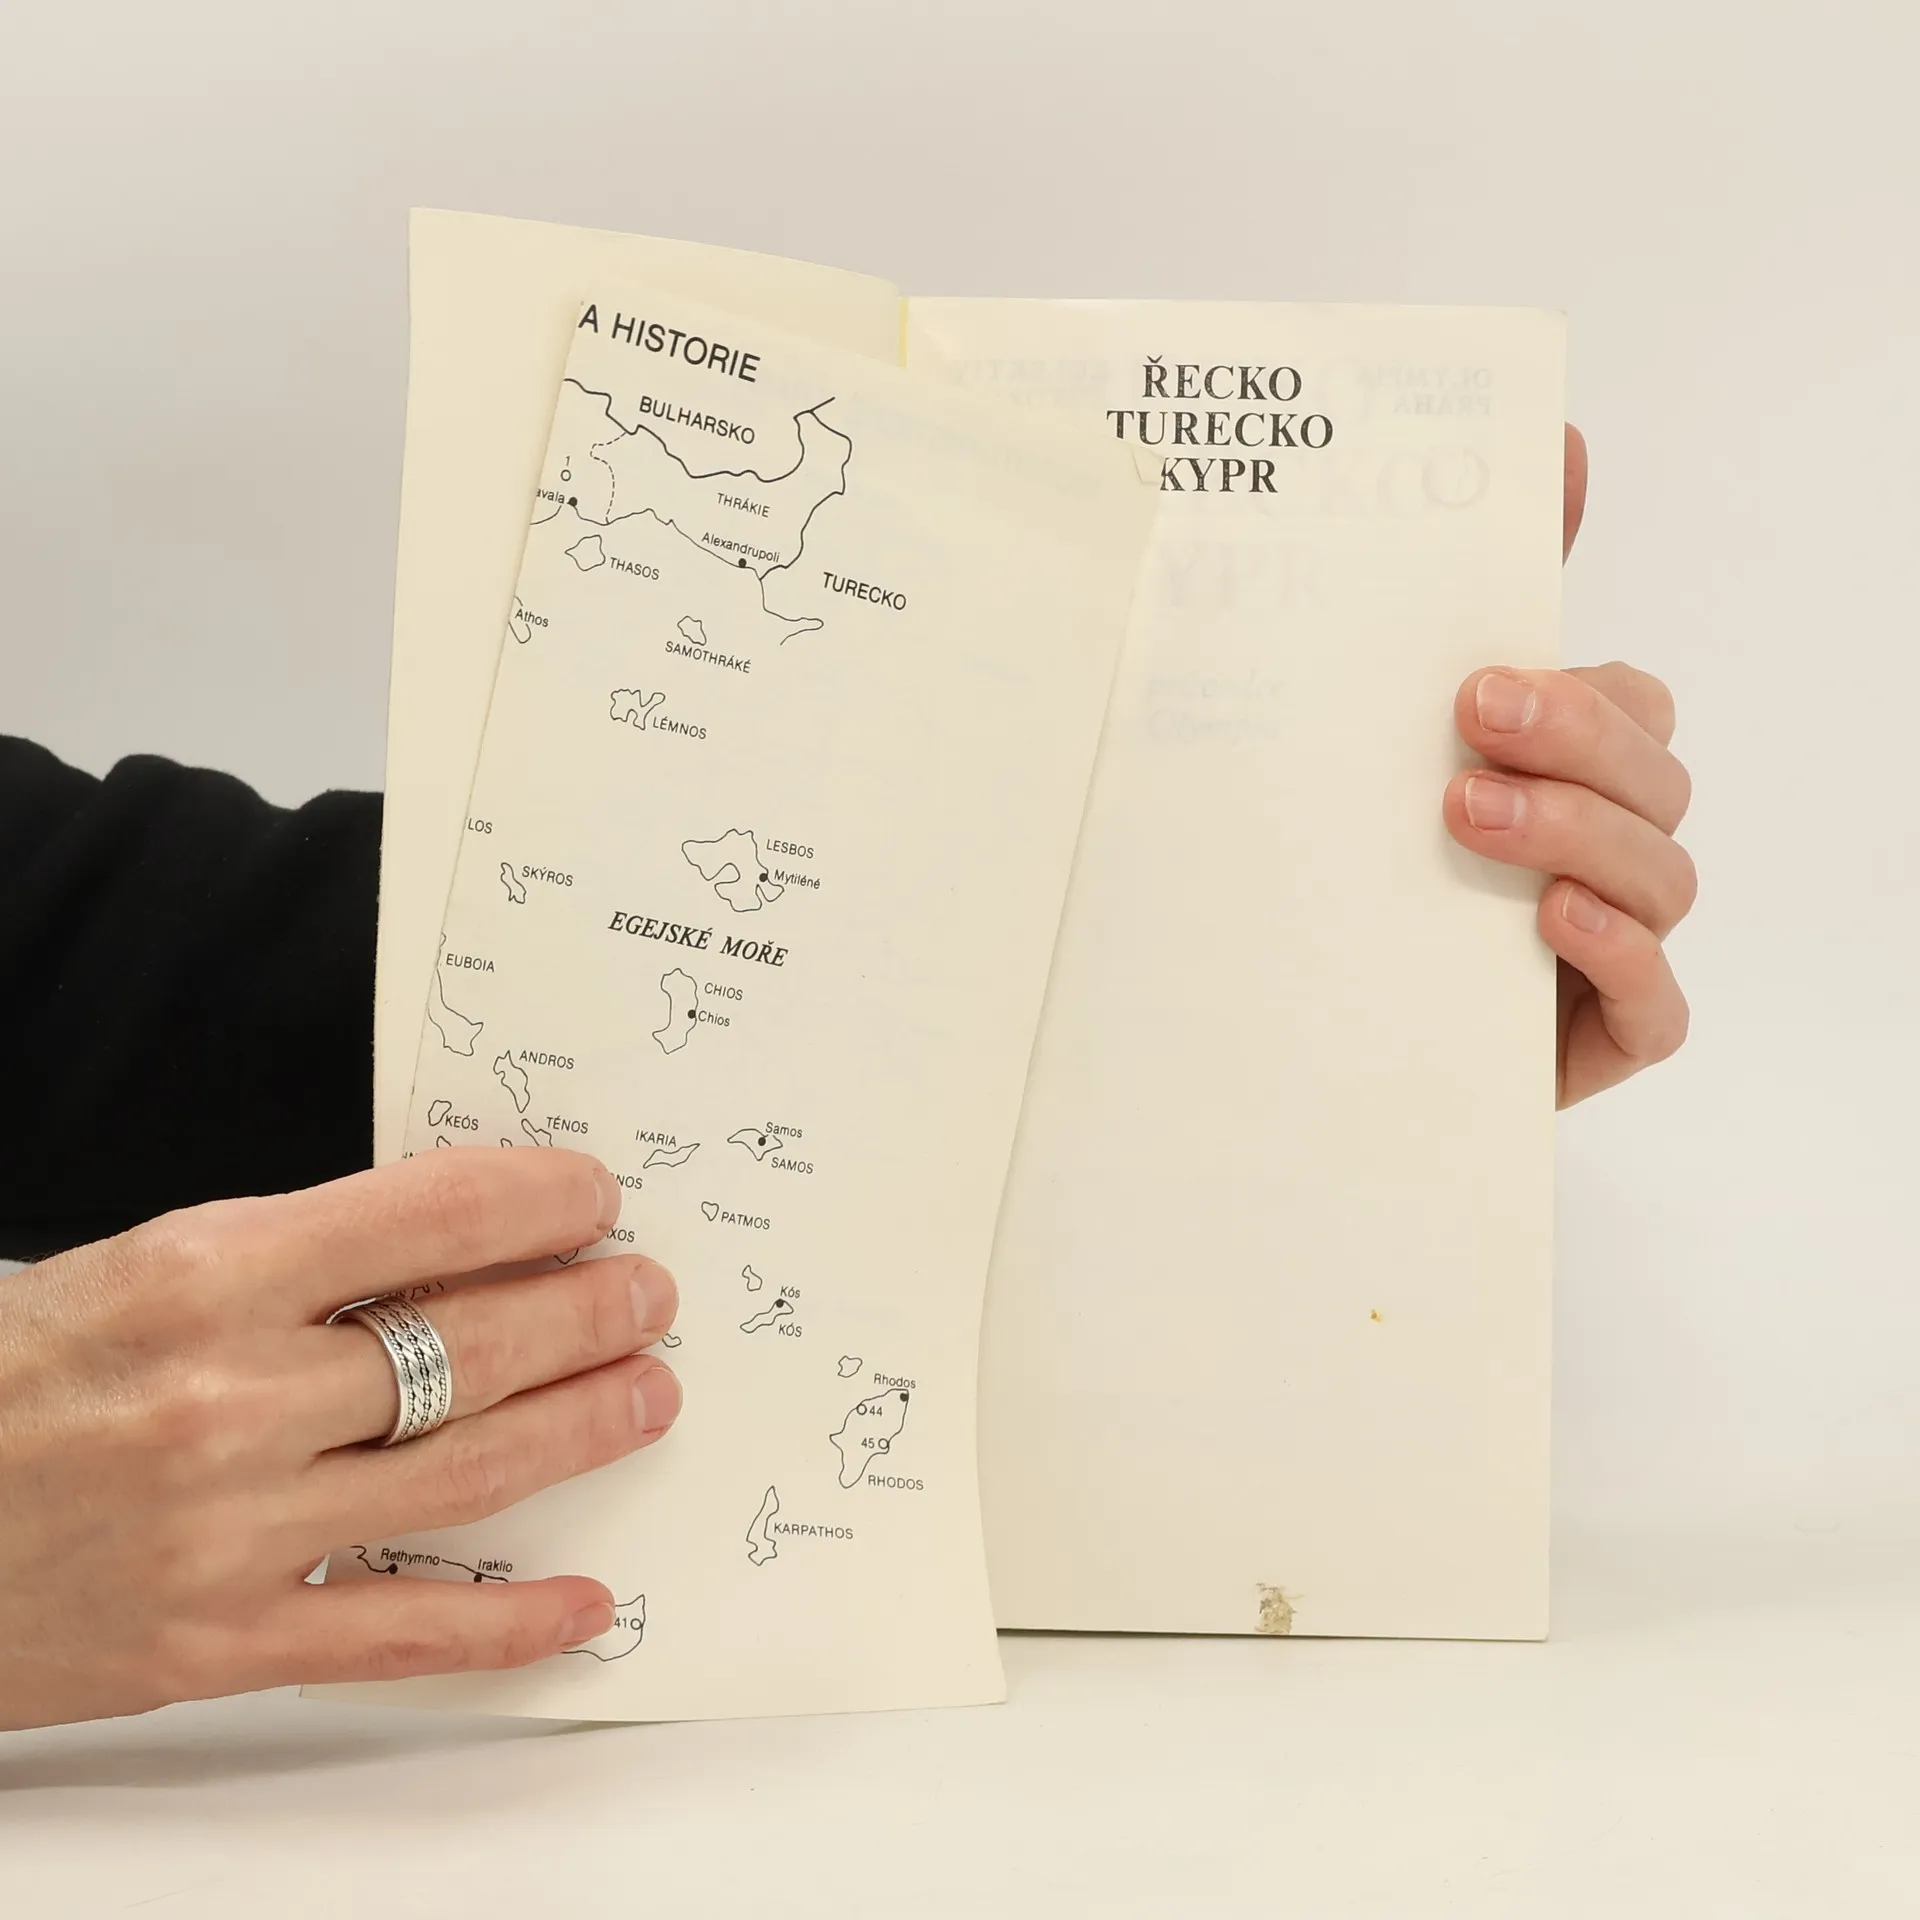 A HISTORIE
BULHARSKO
1
THRÁKIE
Alexandrupoli
THASOS
TURECKO
Athos
SAMOTHRÁKÉ
LÉMNOS
LESBOS
Mytiléné
SKÝROS
EGEJSKÉ MOŘE
EUBOIA
CHIOS
Chios
ANDROS
KEÓS
TÉNOS
IKARIA
Samos
SAMOS
PATMOS
Kós
KÓS
Rhodos
44
45
RHODOS
KARPATHOS
Rethymno
Iraklio
41
ŘECKO
TURECKO
KYPR